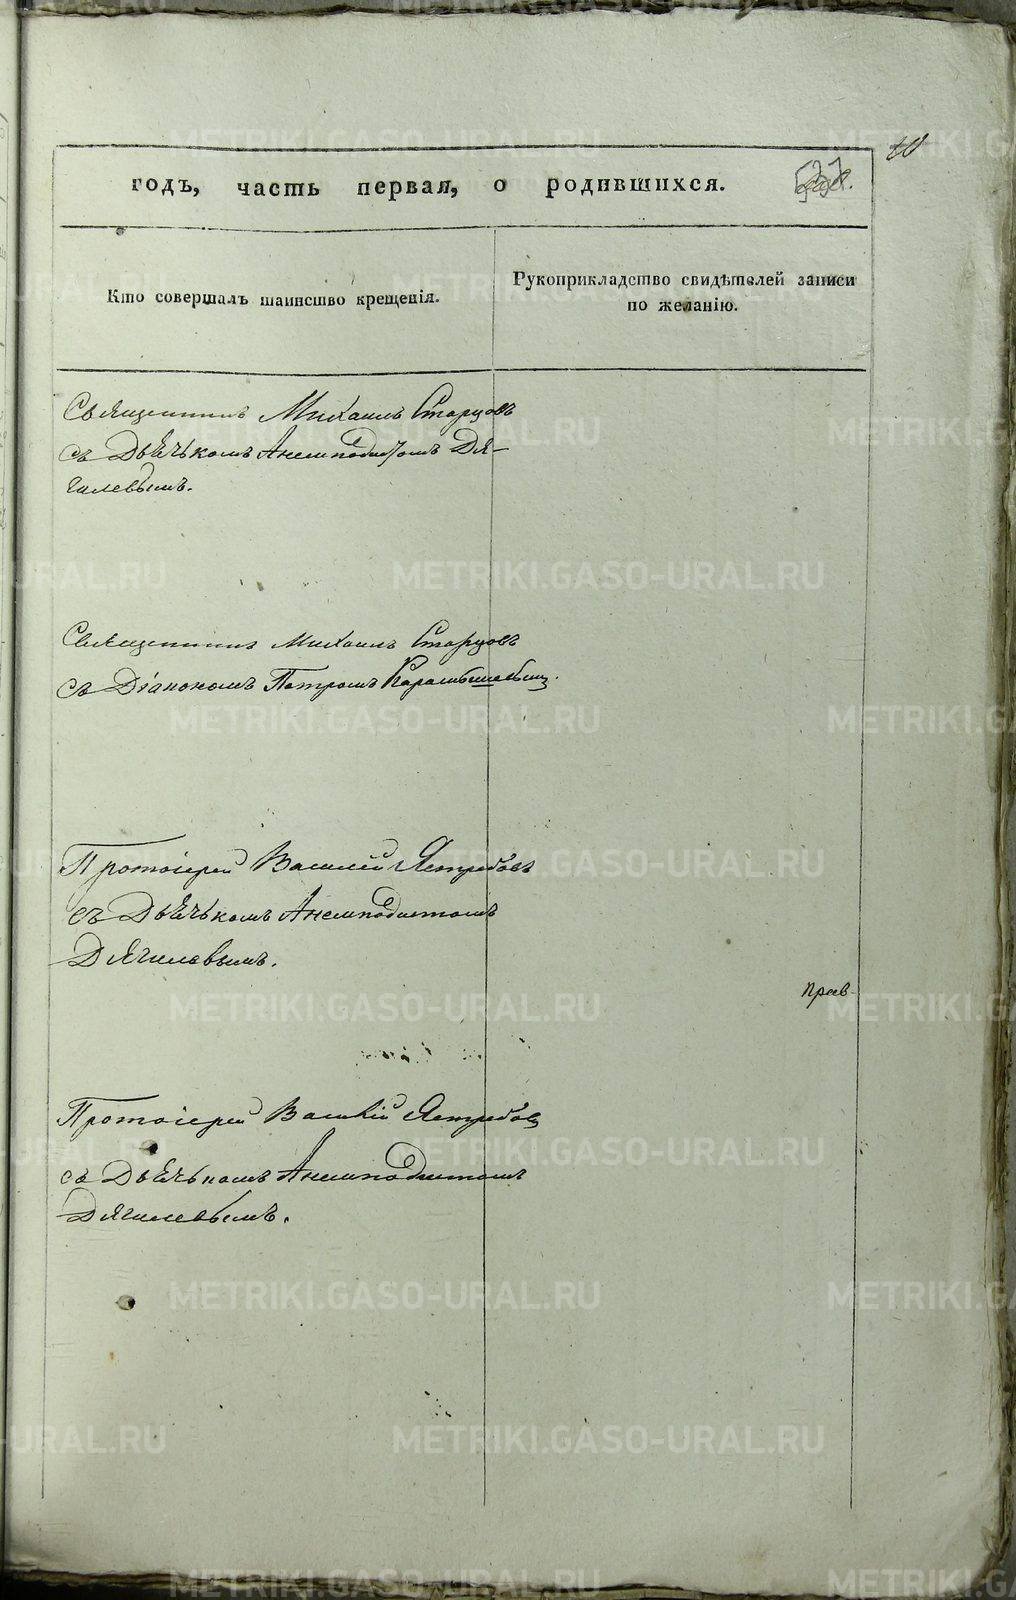 10
годъ, часть первая, о родившихся.
Кто совершалъ таинство крещенія.
Рукоприкладство свидѣтелей записи
по желанію.
Священникъ Михаилъ Старцовъ
съ Дьячькомъ Анемподистомъ Дя-
гилевымъ.
Священникъ Михаилъ Старцовъ
съ Діакономъ Петромъ
Протоіерей Василій Ястребовъ
съ Дьячькомъ Анемподистомъ
Дягилевымъ.
Прав
Протоіерей Василій Ястребовъ
съ Дьячькомъ Анемподистомъ
Дягилевымъ.
METRIKI.GASO-URAL.RU